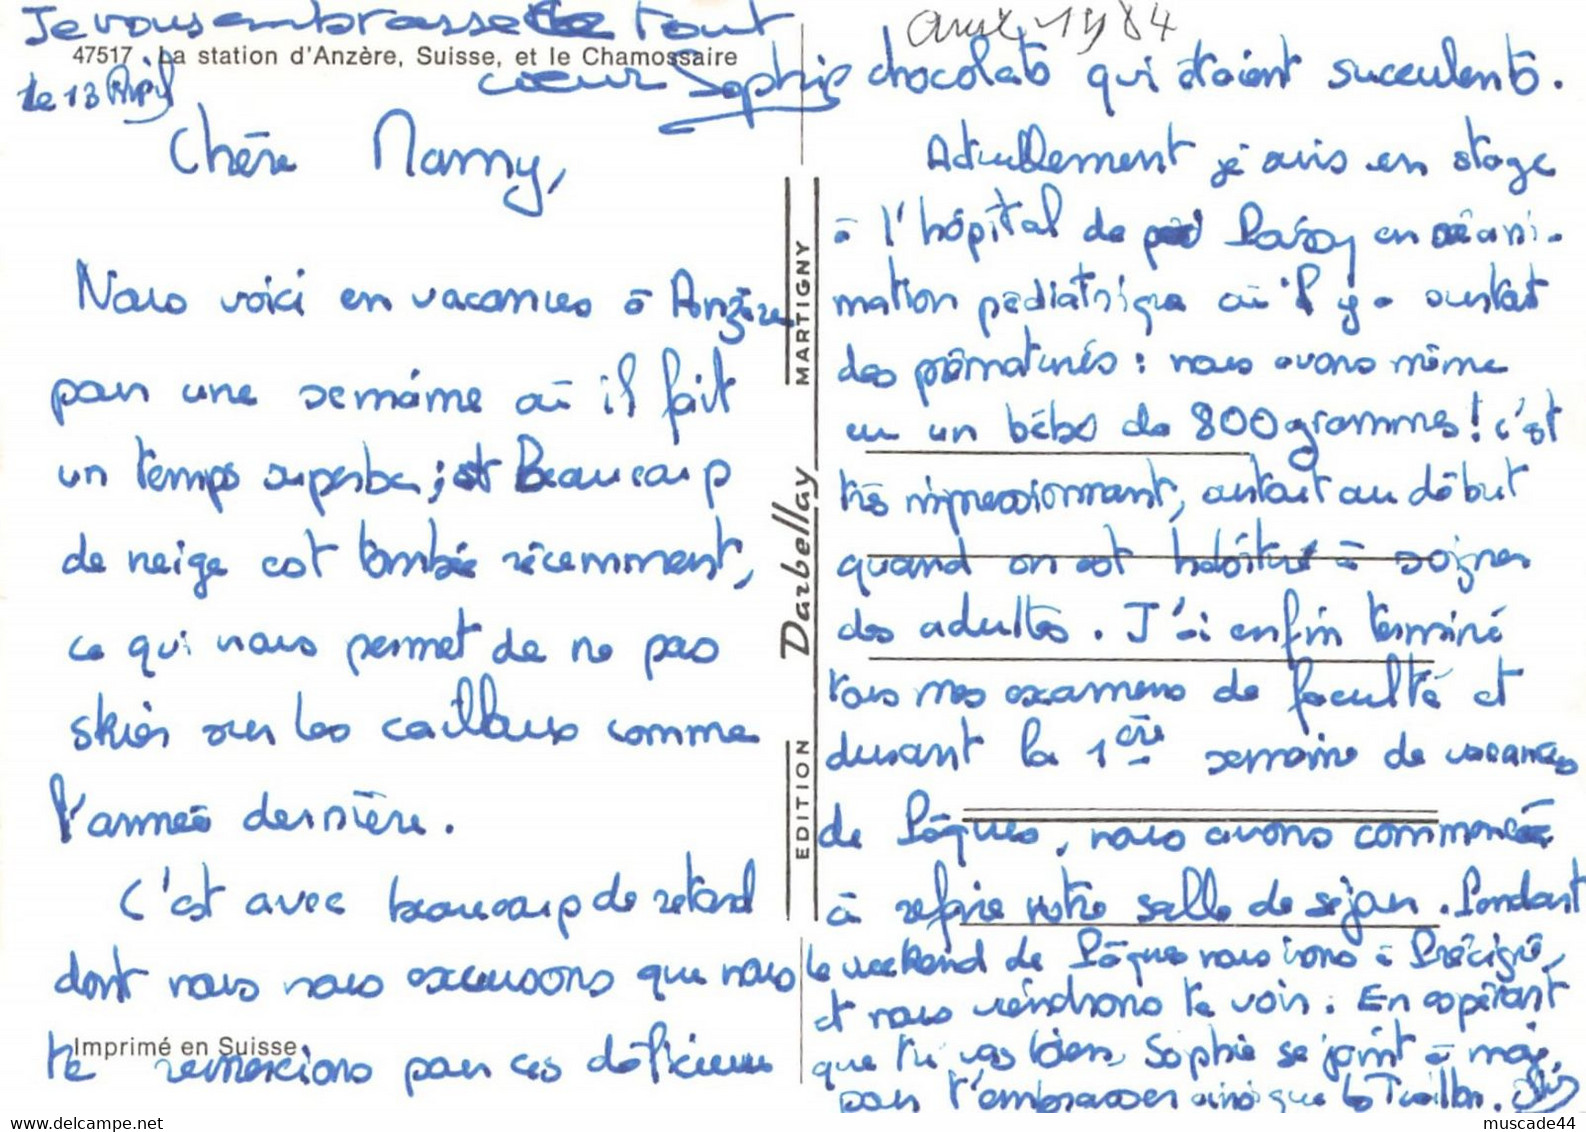 Je vous embrasse de tout
cœur Sophie
47517 La station d'Anzère, Suisse, et le Chamossaire
le 13 April
Chère Mamy,
Nous voici en vacances à Anzère
pour une semaine où il fait
un temps superbe ; et Beaucoup
de neige est tombée récemment,
ce qui nous permet de ne pas
skier sur les cailloux comme
l'année dernière.
C'est avec beaucoup de retard
dont nous nous excusons que nous
te remercions pour ces délicieux
Imprimé en Suisse
EDITION Darbellay MARTIGNY
avril 1984
chocolats qui étaient succulents.
Actuellement je suis en stage
à l'hôpital de Poissy en réani-
mation pédiatrique où il y a surtout
des prématurés : nous avons même
eu un bébé de 800 grammes ! c'est
très impressionnant, surtout au début
quand on est habitué à soigner
des adultes. J'ai enfin terminé
tous mes examens de faculté et
durant la 1ère semaine de vacances
de Pâques, nous avons commencé
à refaire notre salle de séjour. Pendant
le weekend de Pâques nous irons à Précigné,
et nous viendrons te voir. En espérant
que tu vas bien, Sophie se joint à moi,
pour t'embrasser ainsi que
muscade44